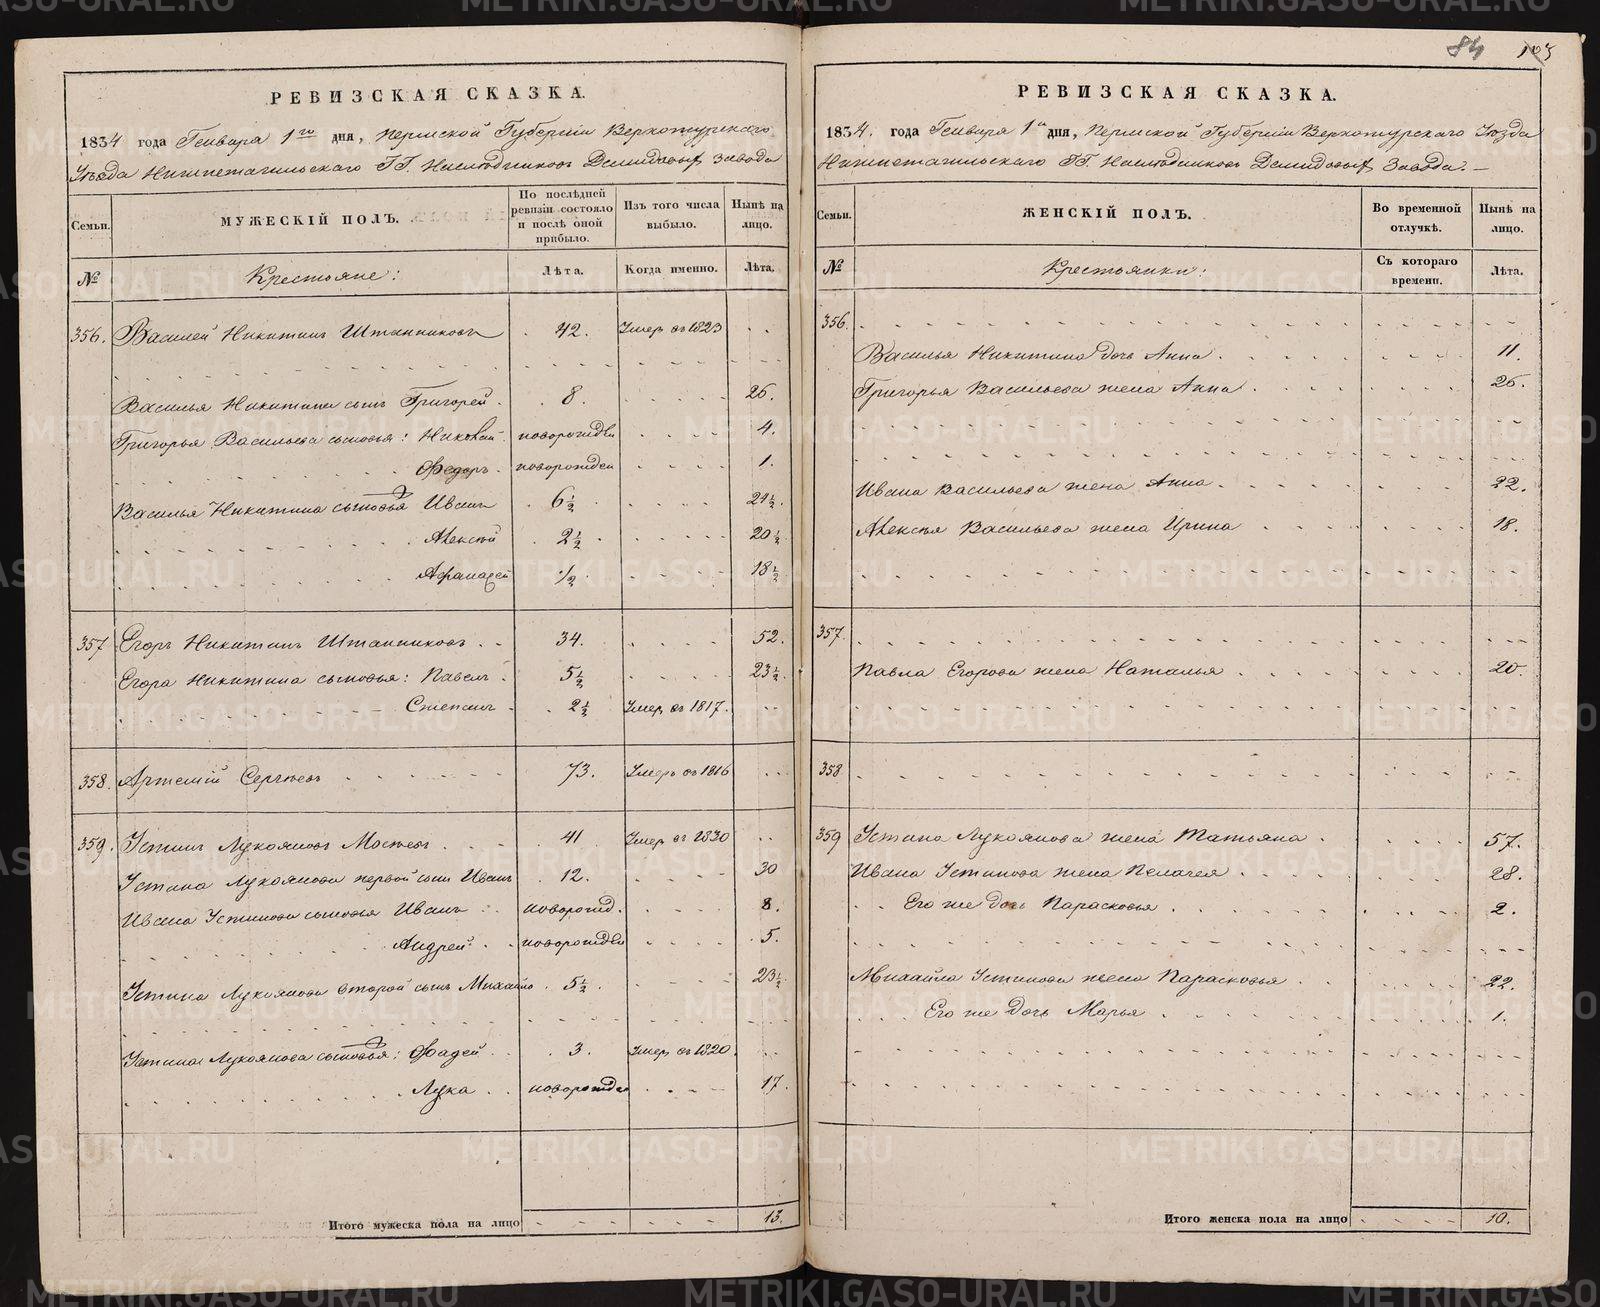 84 103
РЕВИЗСКАЯ СКАЗКА.
1834 года Генваря 1го дня, Пермской Губернии Верхотурского
Уезда Нижнетагильского ГГ. Наследников Демидовых завода
Семьи.
МУЖЕСКІЙ ПОЛЪ.
По послѣдней ревизіи состояло и послѣ оной прибыло.
Изъ того числа выбыло.
Нынѣ на лицо.
№ Крестьяне: Лѣта. Когда именно. Лѣта.
356. Василей Никитинъ Штанниковъ 42. Умеръ въ 1823
Василья Никитина сынъ Григорей 8. 26.
Григорья Васильева сыновья: Николай новорожден 4.
Федоръ новорожден 1.
Василья Никитина сыновья Иванъ 6½ 24½.
Алексѣй 2½ 20½
Афанасей ½ 18½
357 Егоръ Никитинъ Штанниковъ 34. 52.
Егора Никитина сыновья: Павелъ 5½ 23½.
Степанъ 2½ Умеръ въ 1817.
358. Артемій Сергѣевъ 73. Умеръ въ 1816
359. Устинъ Лукояновъ Мосѣевъ 41 Умеръ въ 1830
Устина Лукоянова первой сынъ Иванъ 12. 30
Ивана Устинова сыновья Иванъ новорожд. 8.
Андрей новорожден 5.
Устина Лукоянова второй сынъ Михайло 5½. 23½
Устина Лукоянова сыновья: Фадей 3. Умеръ въ 1820.
Лука новорожден 17.
Итого мужеска пола на лицо 13.
РЕВИЗСКАЯ СКАЗКА.
1834. года Генваря 1го дня, Пермской Губерніи Верхотурскаго Уезда
Нижнетагильскаго ГГ. Наследниковъ Демидовых Завода.
Семьи.
ЖЕНСКІЙ ПОЛЪ.
Во временной отлучкѣ.
Нынѣ на лицо.
№ Крестьянки: Съ котораго времени. Лѣта.
356.
Василья Никитина дочь Анна 11.
Григорья Васильева жена Анна 26.
Ивана Васильева жена Анна 22.
Алексѣя Васильева жена Ирина 18.
357.
Павла Егорова жена Наталья 20.
358
359 Устина Лукоянова жена Татьяна 57.
Ивана Устинова жена Пелагея 28.
Его же дочь Парасковья 2.
Михайла Устинова жена Парасковья 22.
Его же дочь Марья 1.
Итого женска пола на лицо 10.
METRIKI.GASO-URAL.RU